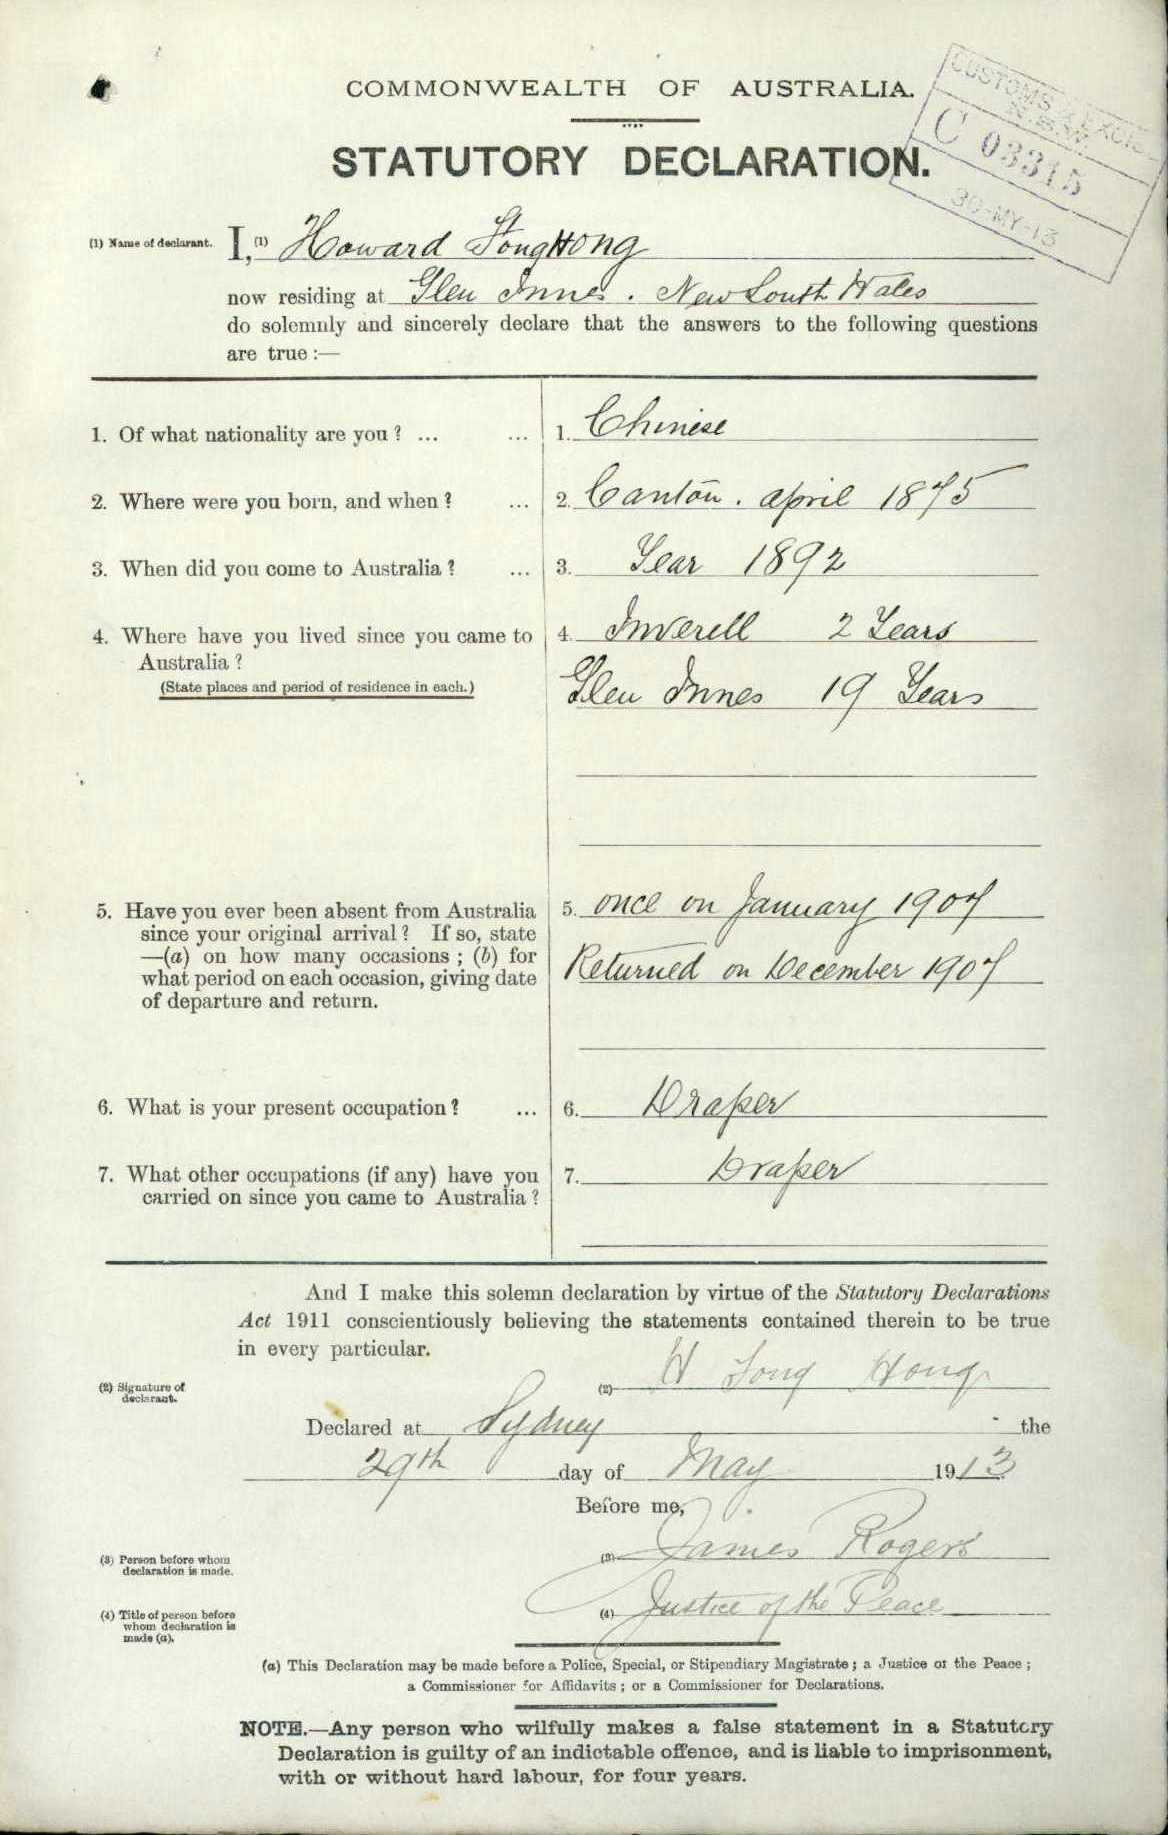 COMMONWEALTH OF AUSTRALIA.
STATUTORY DECLARATION.
CUSTOMS & EXCISE
N.S.W.
C 03315
30-MY-13
(1) Name of declarant. I, (1) Howard Fong Hong
now residing at Glen Innes. New South Wales
do solemnly and sincerely declare that the answers to the following questions
are true:—
1. Of what nationality are you? ... ... 1. Chinese
2. Where were you born, and when? ... 2. Canton. april 1875
3. When did you come to Australia? ... 3. Year 1892
4. Where have you lived since you came to 4. Inverell 2 Years
Australia?
(State places and period of residence in each.) Glen Innes 19 Years
5. Have you ever been absent from Australia 5. once on January 1907
since your original arrival? If so, state
—(a) on how many occasions; (b) for Returned on December 1907
what period on each occasion, giving date
of departure and return.
6. What is your present occupation? ... 6. Draper
7. What other occupations (if any) have you 7. Draper
carried on since you came to Australia?
And I make this solemn declaration by virtue of the Statutory Declarations
Act 1911 conscientiously believing the statements contained therein to be true
in every particular.
(2) Signature of declarant. (2) H Fong Hong
Declared at Sydney the
29th day of May 1913
Before me,
(3) Person before whom declaration is made. (3) James Rogers
(4) Title of person before whom declaration is made (a). (4) Justice of the Peace
(a) This Declaration may be made before a Police, Special, or Stipendiary Magistrate; a Justice of the Peace;
a Commissioner for Affidavits; or a Commissioner for Declarations.
NOTE.—Any person who wilfully makes a false statement in a Statutory
Declaration is guilty of an indictable offence, and is liable to imprisonment,
with or without hard labour, for four years.